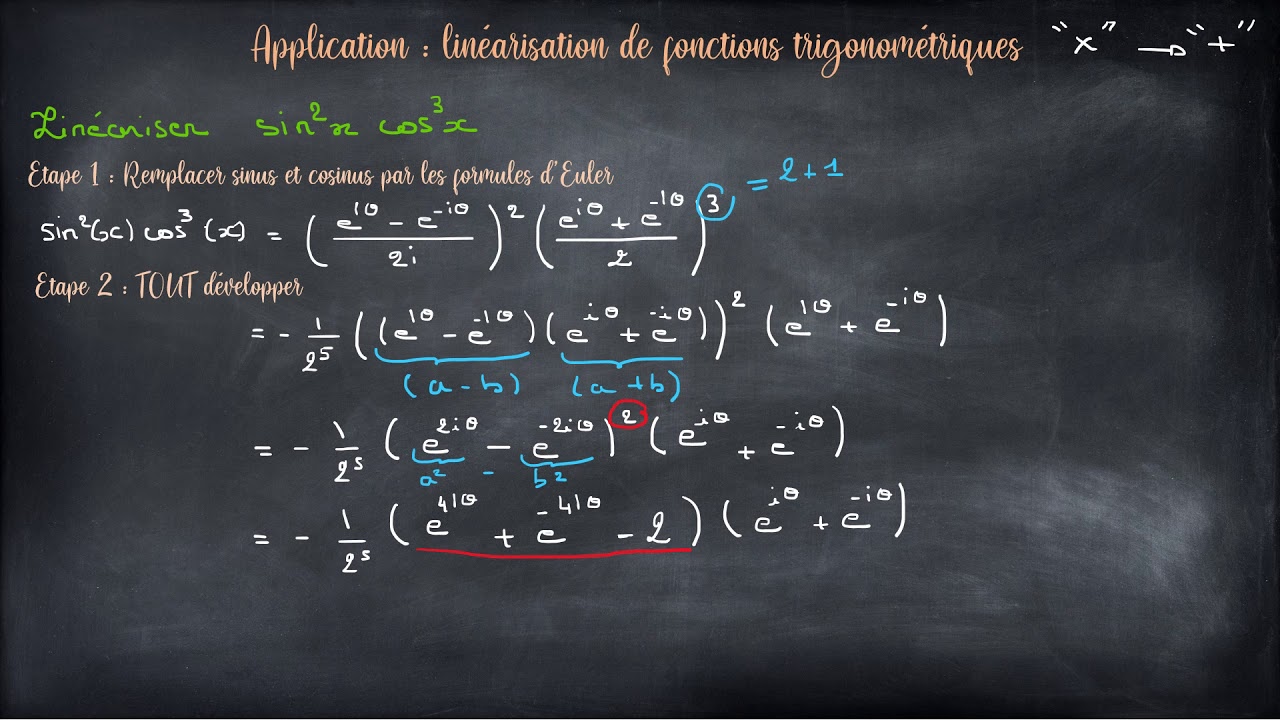 Application : linéarisation de fonctions trigonométriques "x" → "+"
Linéariser sin²x cos³x
Etape 1 : Remplacer sinus et cosinus par les formules d'Euler
sin²(x) cos³(x) = ((e^{iθ} - e^{-iθ})/2i)² ((e^{iθ} + e^{-iθ})/2)³ = 2+1
Etape 2 : TOUT développer
= - 1/2⁵ ((e^{iθ} - e^{-iθ})(e^{iθ} + e^{-iθ}))² (e^{iθ} + e^{-iθ})
(a - b) (a + b)
= - 1/2⁵ (e^{2iθ} - e^{-2iθ})² (e^{iθ} + e^{-iθ})
a² - b²
= - 1/2⁵ (e^{4iθ} + e^{-4iθ} - 2) (e^{iθ} + e^{-iθ})